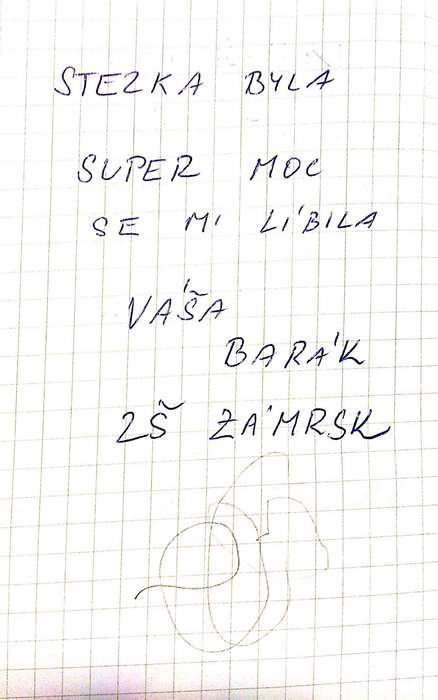 STEZKA BYLA
SUPER MOC
SE MI LÍBILA
VÁŠA
BARÁK
ZŠ ZÁMRSK